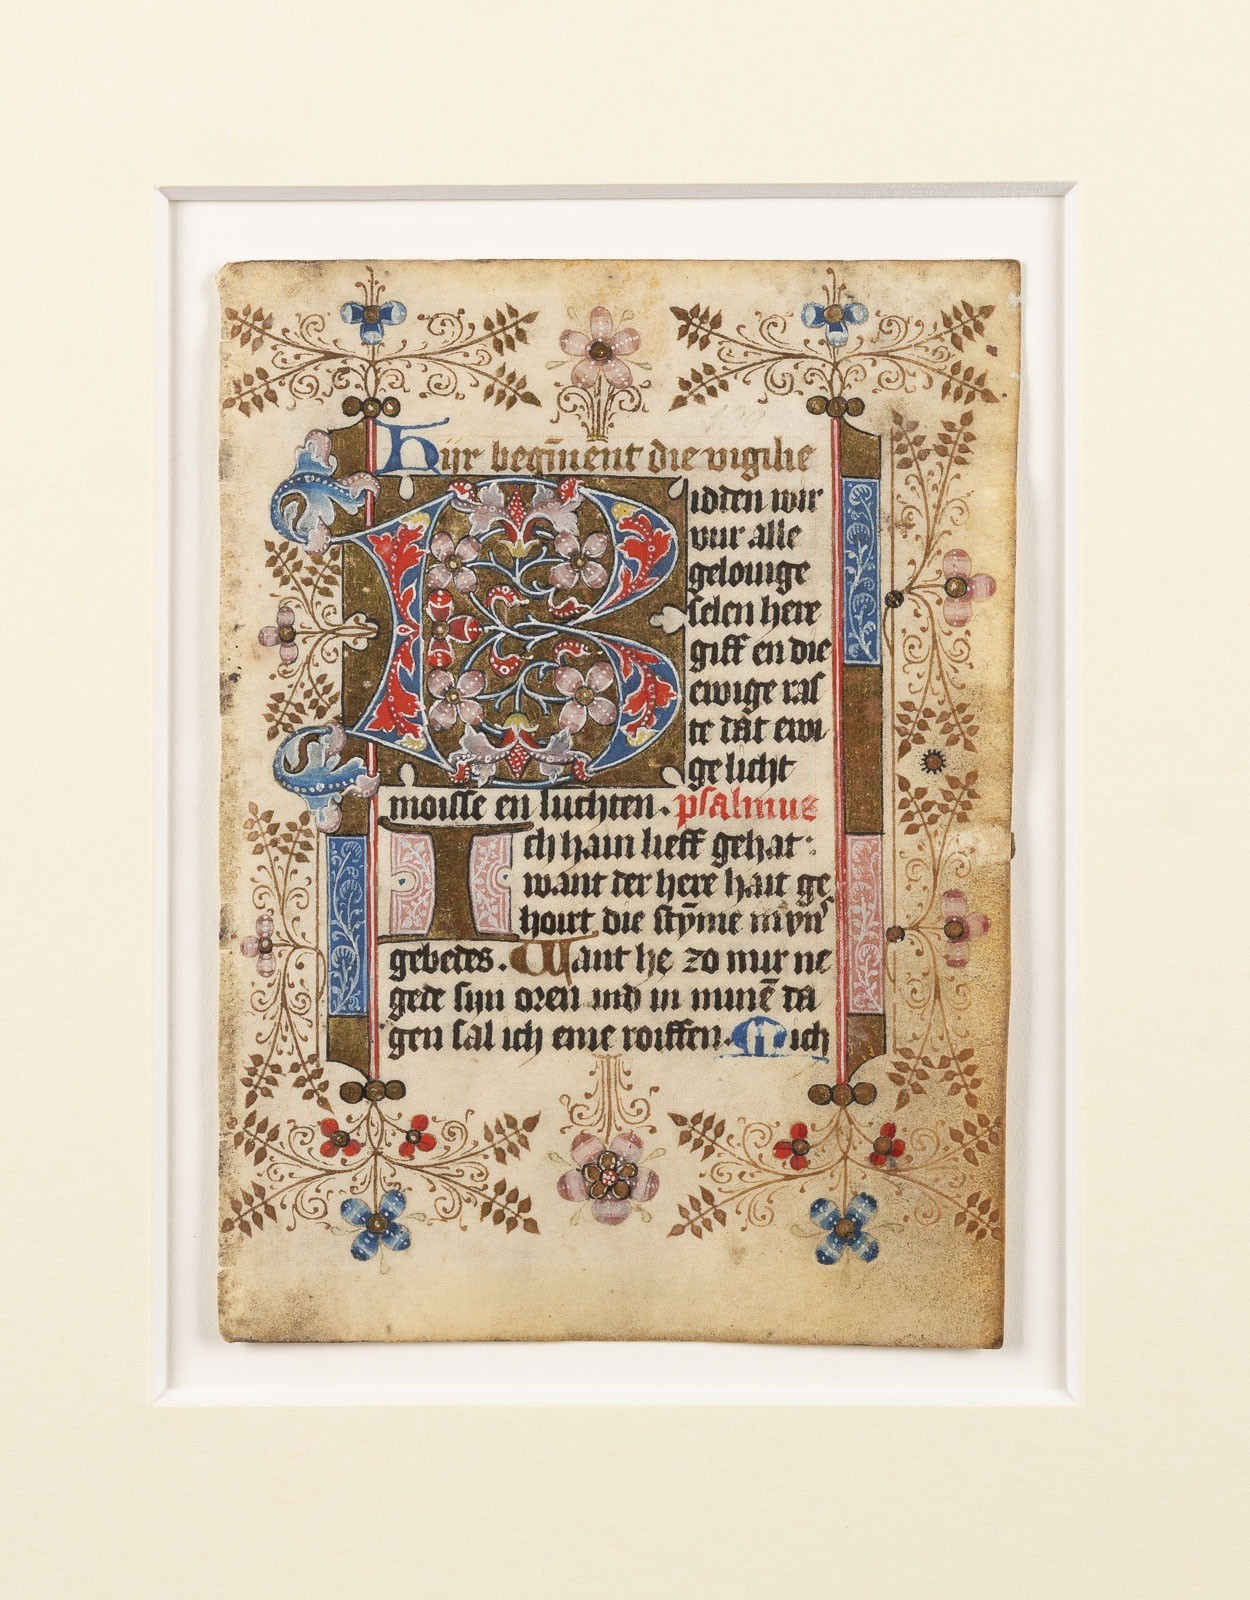 Hijr begīnent die vigilie
Bidden wir
vur alle
gelouige
selen here
giff en die
ewige ras
te dat ewi
ge licht
moisse en luchten. psalmus
Ich hain lieff gehat:
want der here hait ge
hoirt die stȳme myns
gebedes. Want he zo mir ne
gede sijn oren ind in minē da
gen sal ich eme roiffen. Mich